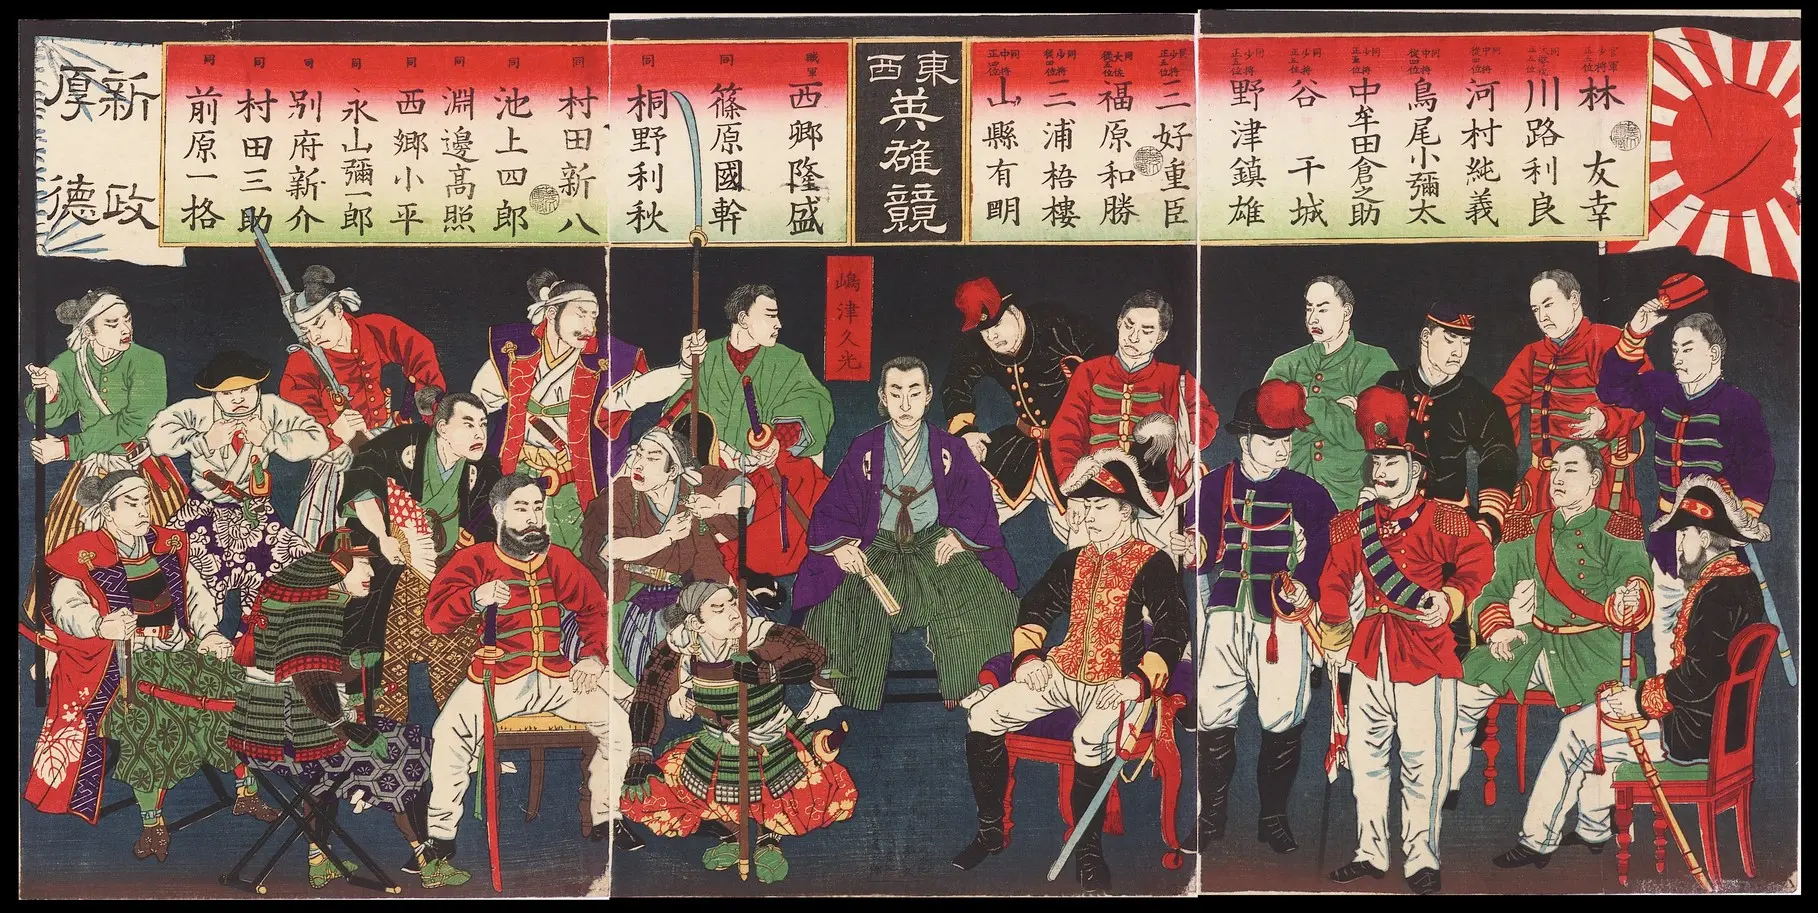 同少将正五位 林友幸
同大警視正五位 川路利良
同中将従四位 河村純義
同中将従四位 鳥尾小彌太
同少将正五位 中牟田倉之助
同少将正五位 谷干城
同少将正五位 野津鎮雄
少将正五位 三好重臣
同大佐従五位 福原和勝
同少将従四位 三浦梧樓
同中将正四位 山縣有朋
東西英雄競
賊軍 西郷隆盛
同 篠原國幹
同 桐野利秋
同 村田新八
同 池上四郎
同 淵邊高照
同 西郷小平
同 永山彌一郎
同 別府新介
同 村田三助
同 前原一格
新政
厚德
嶋津久光